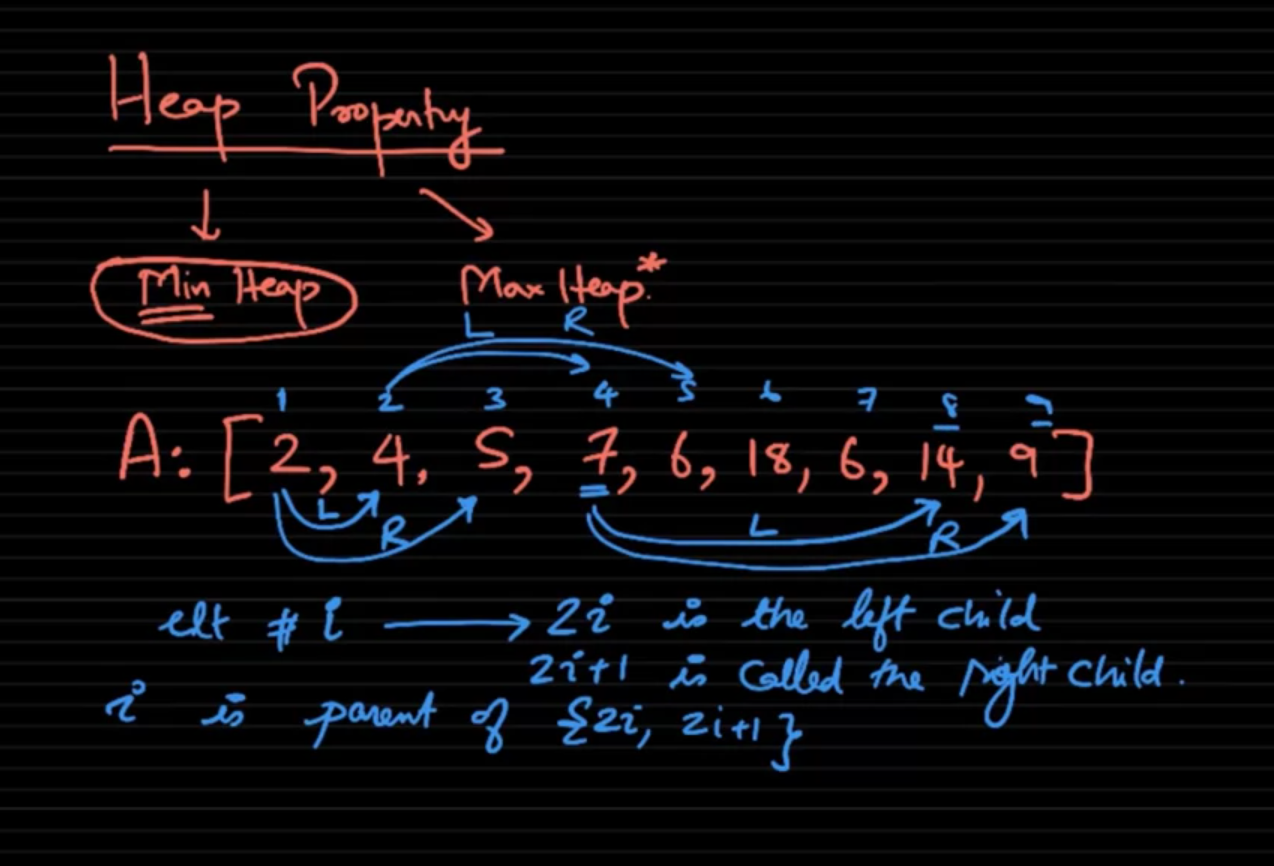 Heap Property
Min Heap Max Heap.*
L R
1 2 3 4 5 6 7 8 9
A: [2, 4, 5, 7, 6, 18, 6, 14, 9]
L R L R
elt # i → 2i is the left child
2i+1 is called the right child.
i is parent of {2i, 2i+1}